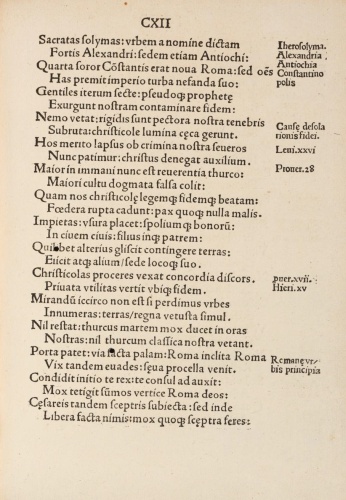 CXII
Sacratas solymas: vrbem a nomine dictam
Fortis Alexandri: sedem etiam Antiochi:
Quarta soror Cõstantis erat noua Roma: sed oẽs
Has premit imperio turba nefanda suo:
Gentiles iterum secte: pseudoqꝫ prophetę
Exurgunt nostram contaminare fidem:
Nemo vetat: rigidis sunt pectora nostra tenebris
Subruta: christicole lumina cęca gerunt.
Hos merito lapsus ob crimina nostra seueros
Nunc patimur: christus denegat auxilium.
Maior in immani nunc est reuerentia thurco:
Maiori cultu dogmata falsa colit:
Quam nos christicolę legemqꝫ fidemqꝫ beatam:
Fœdera rupta cadunt: pax quoqꝫ nulla malis.
Impietas: vsura placet: spoliumqꝫ bonorũ:
In ciuem ciuis: filius inqꝫ patrem:
Quilibet alterius gliscit contingere terras:
Eiicit atqꝫ alium/sede locoqꝫ suo.
Christicolas proceres vexat concordia discors.
Priuata vtilitas vertit vbiqꝫ fidem.
Mirandũ iccirco non est si perdimus vrbes
Innumeras: terras/regna vetusta simul.
Nil restat: thurcus martem mox ducet in oras
Nostras: nil thurcum classica nostra vetant.
Porta patet: via facta palam: Roma inclita Roma
Vix tandem euades: sęua procella venit.
Condidit initio te rex: te consul ad auxit:
Mox tetigit sũmos vertice Roma deos:
Cęsareis tandem sceptris subiecta: sed inde
Libera facta nimis: mox quoqꝫ sceptra feres:
Iherosolyma.
Alexandria.
Antiochia
Constantino
polis
Causę desola
tionis fidei.
Leui.xxvi
Prouer.28
puer.xvii.
Hieri.xv
Romanę vr
bis principia